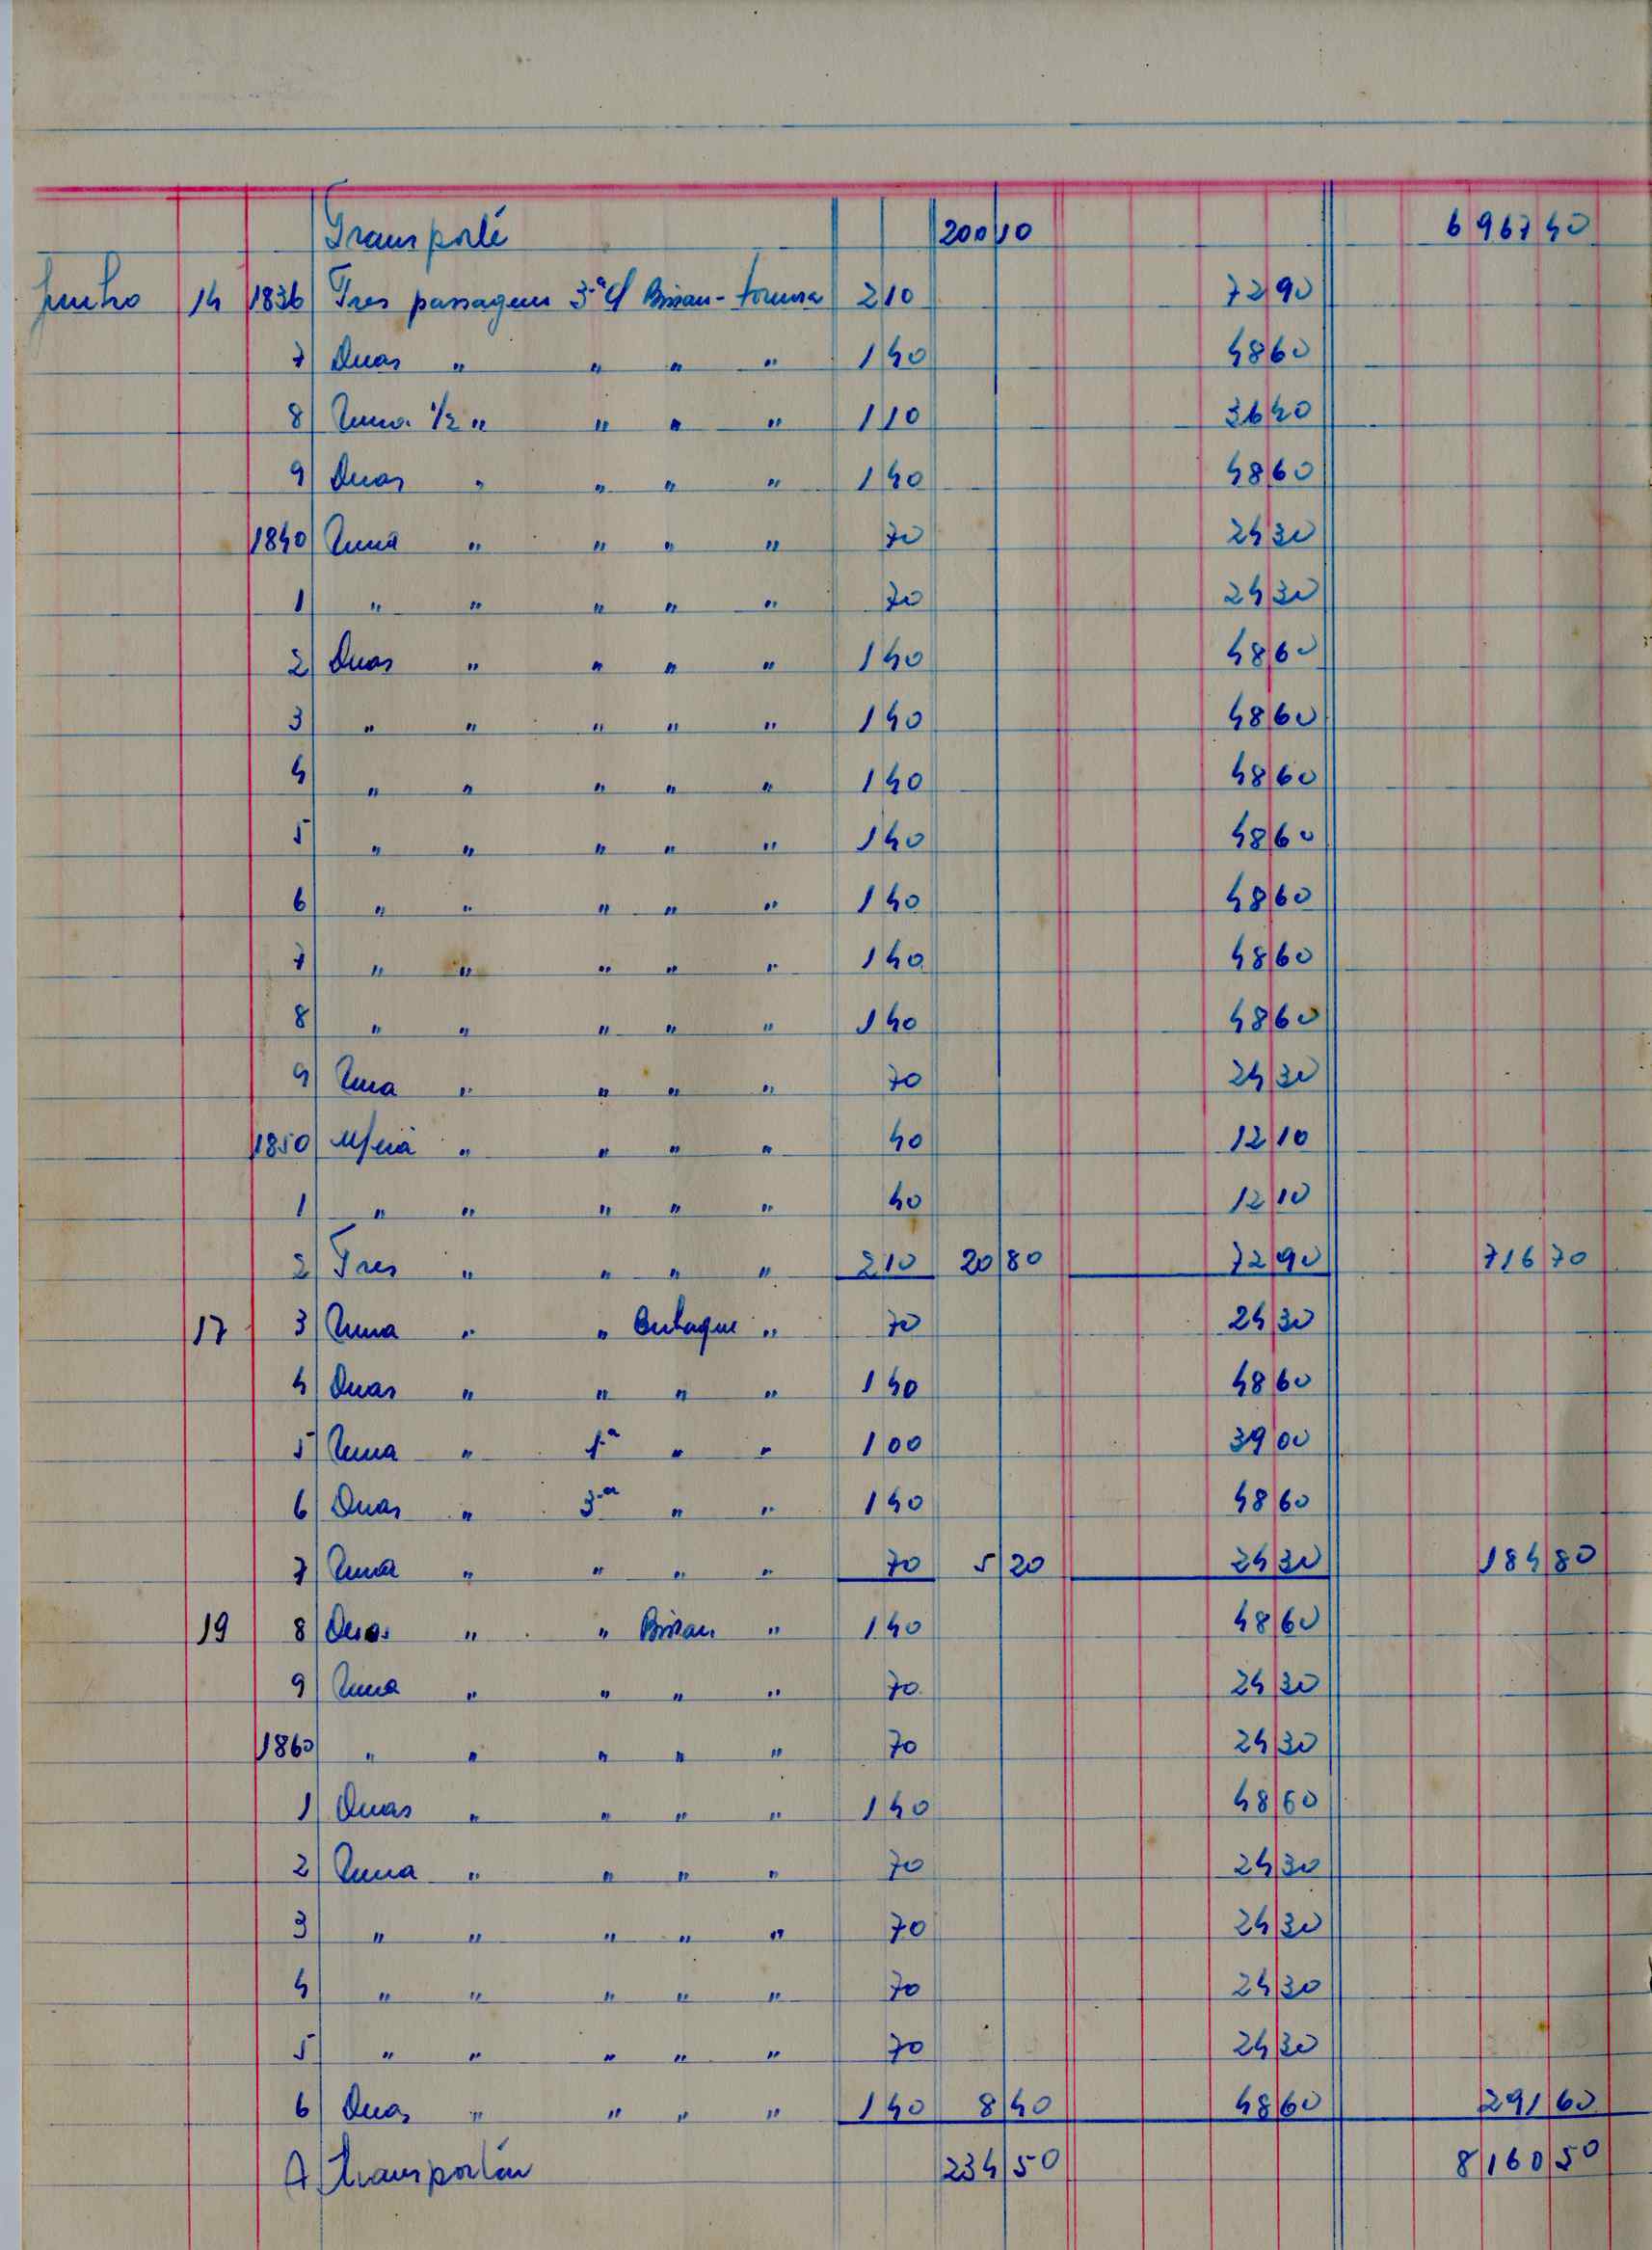 Transporte 200 10 6 967 40
Junho 14 1836 Tres passagem 3.ª cl Bissau- 2 10 72 90
7 Duas " " " " 1 40 48 60
8 Uma 1/2 " " " " 1 10 36 40
9 Duas " " " " 1 40 48 60
1840 Uma " " " " 70 24 30
1 " " " " " 70 24 30
2 Duas " " " " 1 40 48 60
3 " " " " " 1 40 48 60
4 " " " " " 1 40 48 60
5 " " " " " 1 40 48 60
6 " " " " " 1 40 48 60
7 " " " " " 1 40 48 60
8 " " " " " 1 40 48 60
9 Uma " " " " 70 24 30
1850 Meia " " " " 40 12 10
1 " " " " " 40 12 10
2 Tres " " " " 2 10 20 80 72 90 716 70
17 3 Uma " " Bubaque " 70 24 30
4 Duas " " " " 1 40 48 60
5 Uma " 1.ª " " 1 00 39 00
6 Duas " 3.ª " " 1 40 48 60
7 Uma " " " " 70 5 20 24 30 184 80
19 8 Duas " " Bissau " 1 40 48 60
9 Uma " " " " 70 24 30
1860 " " " " " 70 24 30
1 Duas " " " " 1 40 48 60
2 Uma " " " " 70 24 30
3 " " " " " 70 24 30
4 " " " " " 70 24 30
5 " " " " " 70 24 30
6 Duas " " " " 1 40 8 40 48 60 291 60
A transportar 234 50 8 160 50